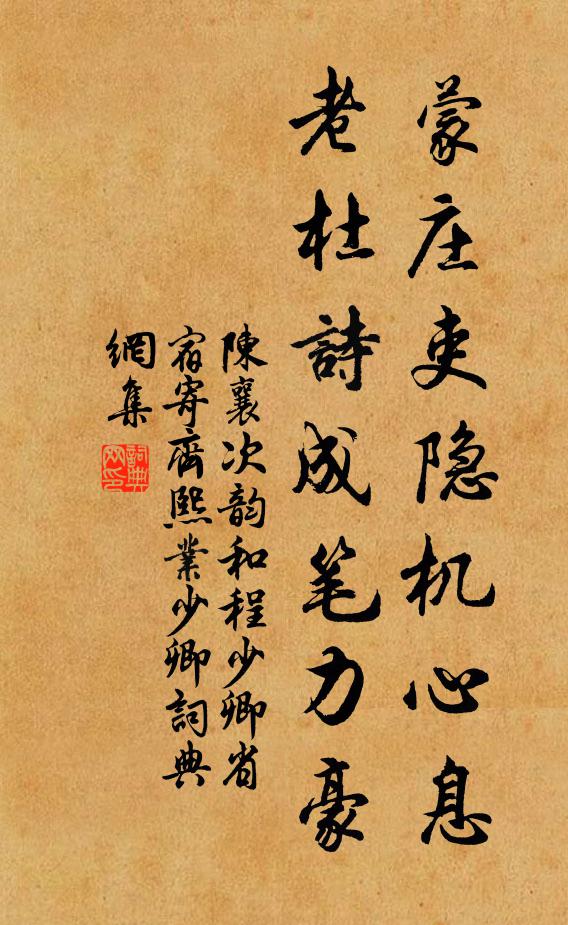 蒙庄吏隐机心息
老杜詩成笔力豪
陳襄次韵和程少卿省
宿寄齊熙業少卿詞典
網集
詞典
网印